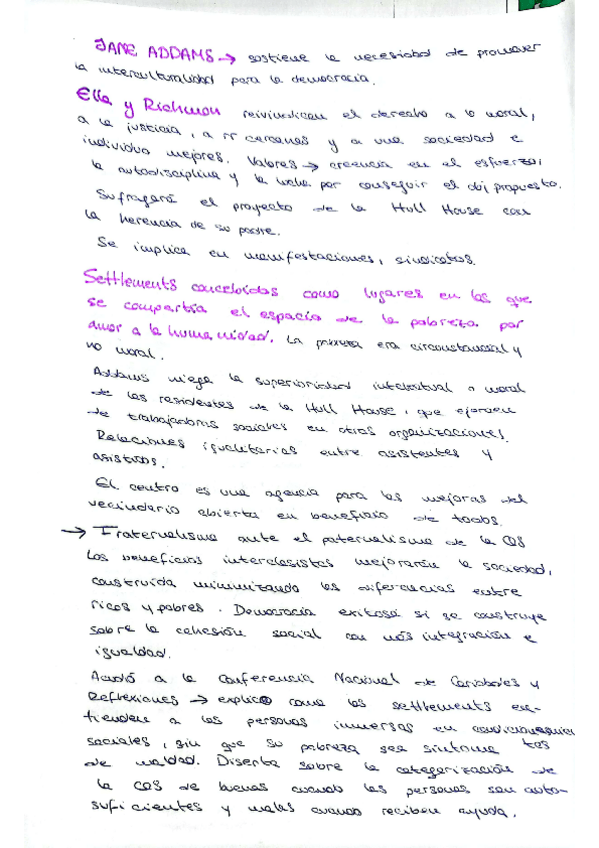 JANE ADDAMS → sostiene la necesidad de promover
la interculturalidad para la democracia.
Ella y Richmon reivindican el derecho a lo moral,
a la justicia, a rr cercanas y a una sociedad e
individuo mejores. Valores → creencia en el esfuerzo,
la autodisciplina y la lucha por conseguir el obj propuesto.
Sufragará el proyecto de la Hull House con
la herencia de su padre.
Se implica en manifestaciones, sindicatos.
Settlements concebidas como lugares en los que
se compartía el espacio de la pobreza por
amor a la humanidad. La pobreza era circunstancial y
no moral.
Addams niega la superioridad intelectual o moral
de los residentes de la Hull House, que ejercen
de trabajadoras sociales en otras organizaciones.
Relaciones igualitarias entre asistentes y
asistidos.
El centro es una agencia para las mejoras del
vecindario abierta en beneficio de todos.
→ Fraternalismo ante el paternalismo de la COS
Los beneficios interclasistas mejorarán la sociedad,
construida minimizando las diferencias entre
ricos y pobres. Democracia exitosa si se construye
sobre la cohesión social con más integración e
igualdad.
Acudió a la Conferencia Nacional de Caridades y
Reflexiones → explicó como los settlements en-
tienden a las personas inmersas en condiciones
sociales, sin que su pobreza sea síntoma
de maldad. Diserta sobre la categorización de
la COS de buenas cuando las personas son auto-
suficientes y malas cuando reciben ayuda.